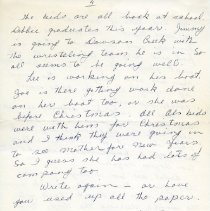 4
the kids are all back at school.
Debbie graduates this year. Jimmy
is going to Dawson Creek with
the wrestling team he is in so
all seems to be going well
Lee is working on her boat.
Joe is there getting work done
on her boat too, or she was
before Christmas. All Abs kids
were with him for Christmas
and I think they were going in
to see Mother for New Years.
So I guess she has had lots of
company too.
Write again - or have
you used up all the paper.